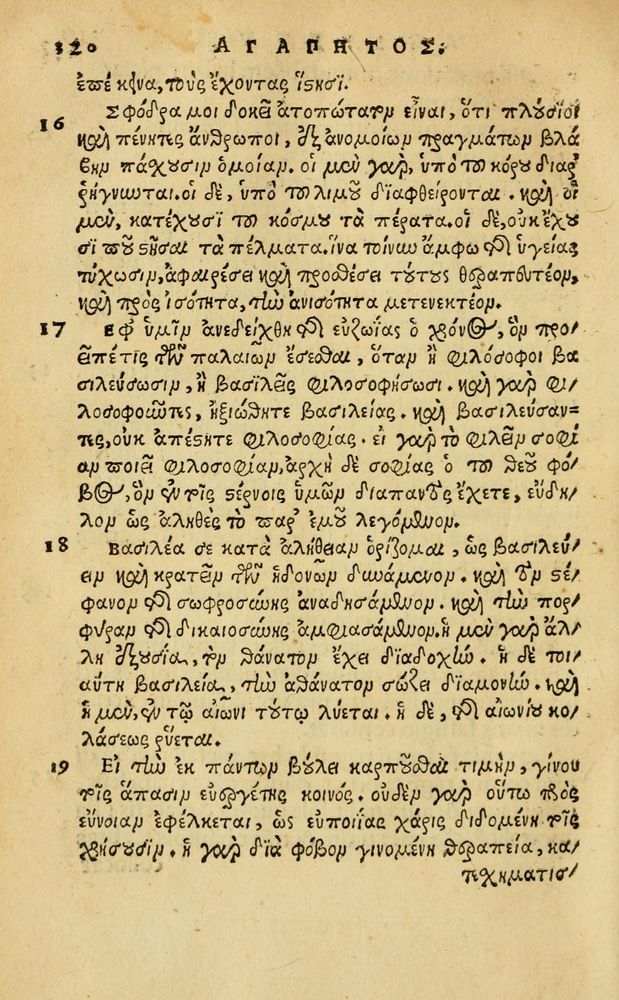 320 ΑΓΑΠΗΤΟΣ.
ἐπέκεινα, τοὺς ἔχοντας ἵστησι.
16 Σφόδρα μοι δοκεῖ ἀτοπώτατον εἶναι, ὅτι πλούσιοι
καὶ πένητες ἄνθρωποι, ἐξ ἀνομοίων πραγμάτων βλά
βην πάχουσιν ὁμοίαν. οἱ μὲν γὰρ, ὑπὸ τοῦ κόρου διαῤ
ῥήγνωνται. οἱ δὲ, ὑπὸ τοῦ λιμοῦ διαφθείρονται. καὶ οἱ
μὲν, κατέχουσι τοῦ κόσμου τὰ πέρατα. οἱ δὲ, οὐκ ἔχου
σι ποῦ στῆσαι τὰ πέλματα. ἵνα τοίνυν ἄμφω τῆς ὑγείας
τύχωσιν, ἀφαιρέσει καὶ προσθέσει τούτους θεραπευτέον,
καὶ πρὸς ἰσότητα, τὴν ἀνισότητα μετενεκτέον.
17 Ἐφ' ὑμῖν ἀνεδείχθη τῆς εὐζωΐας ὁ χρόνος, ὃν προ/
εῖπέ τις τῶν παλαιῶν ἔσεσθαι, ὅταν ἢ φιλόσοφοι βα
σιλεύσωσιν, ἢ βασιλεῖς φιλοσοφήσωσι. καὶ γὰρ φι/
λοσοφοῦντες, ἠξιώθητε βασιλείας. καὶ βασιλεύσαν=
τες, οὐκ ἀπέστητε φιλοσοφίας. εἰ γὰρ τὸ φιλεῖν σοφί
αν ποιεῖ φιλοσοφίαν, ἀρχὴ δὲ σοφίας ὁ τοῦ θεοῦ φό/
βος, ὃν ἐν τοῖς στέρνοις ὑμῶν διαπαντὸς ἔχετε, εὔδη/
λον ὡς ἀληθὲς τὸ παρ' ἐμοῦ λεγόμενον.
18 Βασιλέα σε κατὰ ἀλήθειαν ὁρίζομαι, ὡς βασιλεύ/
ειν καὶ κρατεῖν τῶν ἡδονῶν δυνάμενον. καὶ τὸν στέ/
φανον τῆς σωφροσύνης ἀναδησάμενον. καὶ τὴν πορ/
φύραν τῆς δικαιοσύνης ἀμφιασάμενον. ἡ μὲν γὰρ ἄλ/
λη ἐξουσία, τὸν θάνατον ἔχει διαδοχήν. ἡ δὲ τοι/
αύτη βασιλεία, τὴν ἀθάνατον σώζει διαμονήν. καὶ
ἡ μὲν, ἐν τῷ αἰῶνι τούτῳ λύεται. ἡ δὲ, τῆς αἰωνίου κο/
λάσεως ῥύεται.
19 Εἰ τὴν ἐκ πάντων βούλει καρποῦσθαι τιμὴν, γίνου
τοῖς ἅπασιν εὐεργέτης κοινός. οὐδὲν γὰρ οὕτω πρὸς
εὔνοιαν ἐφέλκεται, ὡς εὐποιΐας χάρις διδομένη τοῖς
χρῄζουσιν. ἡ γὰρ διὰ φόβον γινομένη θεραπεία, κα/
τεχηματισ/